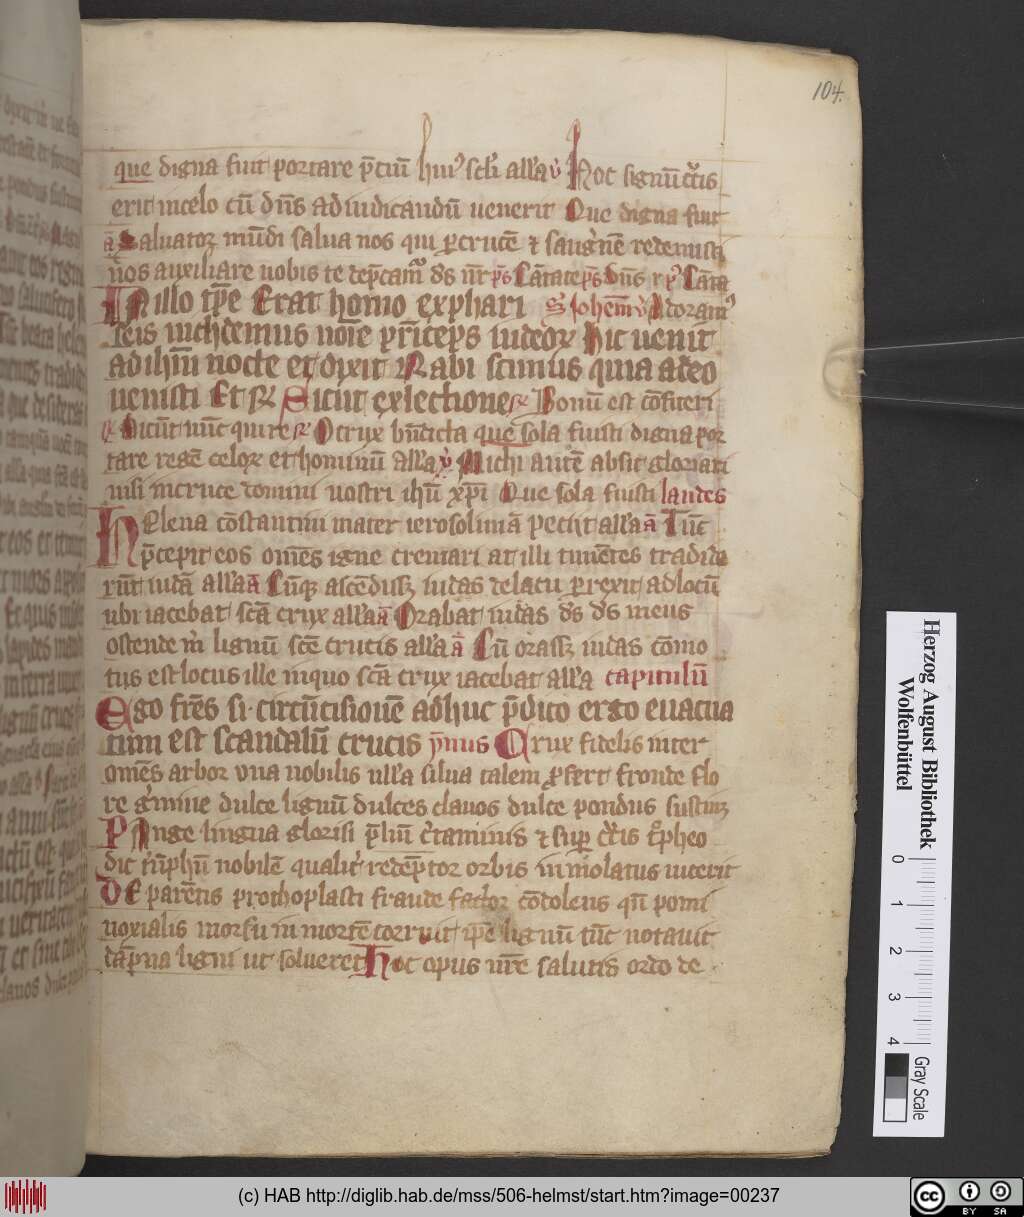 104.
que digna fuit portare p̄ciū hui⁹ scl̄i all'a v̉ Hoc signū cͬcis
erit in celo cū dn̄s ad iudicandū venerit Que digna fuit
ā Saluator mūdi salua nos qui ꝑ crucē ⁊ sāguīnē redemisti
nos auxiliare nobis te dep̄cam᷒ ds̄ nr̄ ps̄ Cātate ps̄ Dn̄s Cāta
In illo tp̄e Erat homo ex phari Adoram⁹
seis nichdemus noīe pr̄iceps iudeoꝝ hic venit
ad ihm̄ nocte et dixit Rabi scimus quia a deo
venisti Et Sicut ex lectione Bonū est cōfiteri
Dicūt nūc qui re O crux bn̄dicta que sola fuisti digna por
tare regē celoꝝ et hominū all'a v̉ Michi autē absit gloriari
nisi in cruce domini nostri ihū xp̄i Que sola fuisti laudes
Helena cōstantini mater ierosolimā peciit all'a ā Tūc
p̄cepit eos om̄es igne cremari at illi timētes tradide
rūt iudā all'a ā Cūq; ascēdiss; iudas de lacu ꝑrexit ad locū
ubi iacebat scā crux all'a ā Orabat iudas ds̄ ds̄ meus
ostende m̄ lignū scē crucis all'a ā Cū orass; iudas cōmo
tus est locus ille in quo scā crux iacebat all'a capitulū
Ego fr̄es si circūcisionē adhuc p̄dico ergo euacua
tum est scandalū crucis ȳnus Crux fidelis inter
om̄es arbor vna nobilis null'a silua talem ꝓfert fronde flo
re gͬmine dulce lignū dulces clauos dulce pondus sustin;
Pange lingua gloriosi p̄liū c̄taminis ⁊ suꝑ cͬcis tͦpheo
dic tͬūphū nobilē qualit̄ redēptor orbis immolatus vicerit
De parētis prothoplasti fraude factor cōdolens qn̄ pomi
noxialis morsu in mortē corruit ip̄e lignū tūc notauit
dāpna ligni ut solueret Hoc opus nr̄e salutis ordo de
Herzog August Bibliothek
Wolfenbüttel
0 1 2 3 4
Gray Scale
(c) HAB http://diglib.hab.de/mss/506-helmst/start.htm?image=00237
cc BY SA